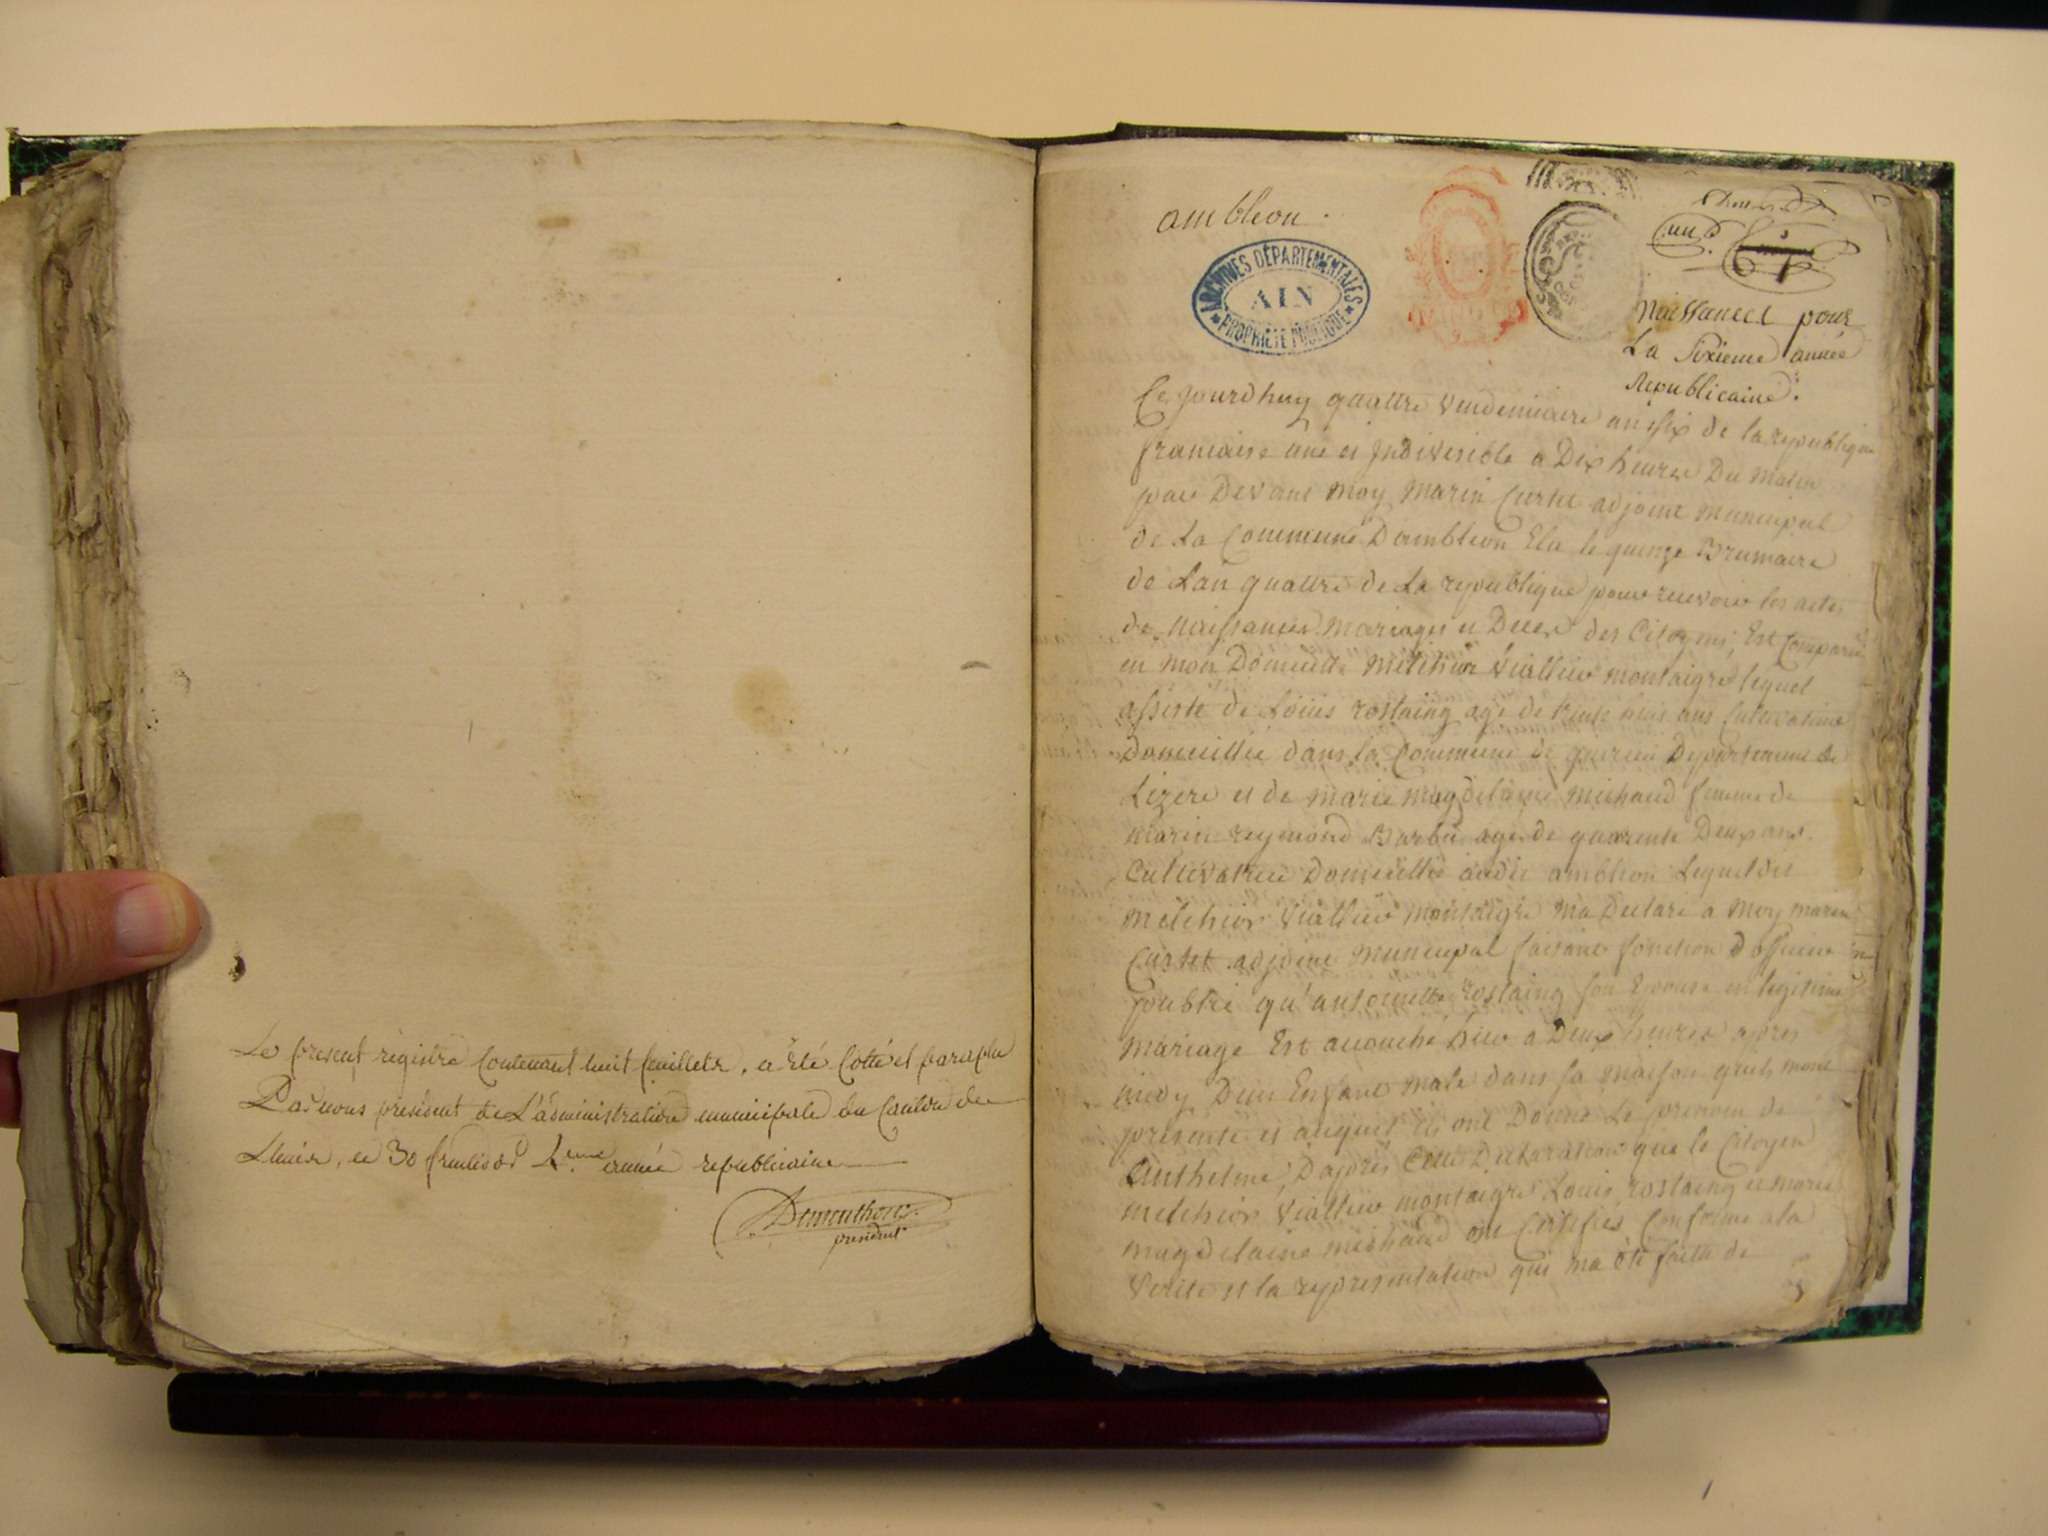 Le present régistre Contenant huit feuillets, a été Cotté et paraphé
Par nous président de L'administration municipale du Canton de
Lhuis, le 30 fructidor 4.eme année republicaine
Demonthoux
president
ambléon.
ARCHIVES DÉPARTEMENTALES
AIN
PROPRIÉTÉ PUBLIQUE
Naissances pour
La Sixieme année
Republicaine.
Ce jourdhuy quattre vendemiaire an six de la republique
francaise une et jndivisible a Dix heures Du matin
par Devant moy marin Curtet adjoint municipal
de La Commune Dambleon Elu le quinze Brumaire
de Lan quattre de La republique pour recevoir les actes
de Naissances mariages et Deces des Citoyens, Est Comparu
en mon Domicille melchior Viallier montaigre lequel
assisté de Louis rostaing agé de trente ans Cultivateur
Domicillié dans la Commune de Departement de
Lizere et de marie magdelaine michaud femme de
marin reymond Barbu agé de quarente Deux ans
Cultivatrice Domicillié audit ambleon Lequel dit
melchior Viallier montaigre ma Declaré a moy marin
Curtet adjoint municipal faisant fonction dofficier
publie qu'antoinette rostaing son Epouse en legitime
mariage Est acouché hier a Deux heures apres
midy Dun Enfant male dans sa maison quils mont
presenté et auquel ils ont Donné Le prenom de
Anthelme, Dapres Cette Declaration que le Citoyen
melchior Viallier montaigre Louis rostaing et marie
magdelaine michaud ont Certifiés Conforme a la
Verite et la representation qui ma été faitte de